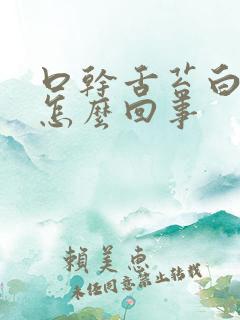 口幹舌苔白
怎麼回事
賴美惠
未經同意禁止轉載